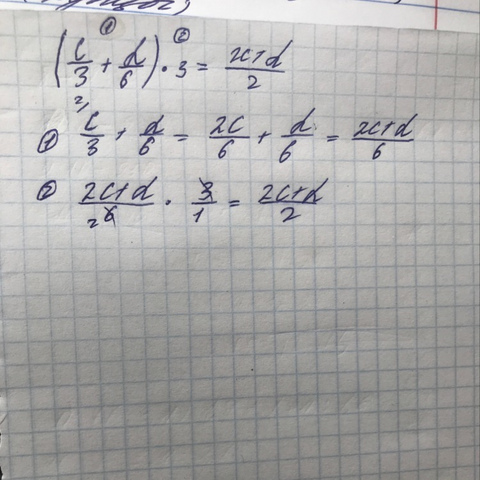 ① ②
(c/3 + d/6) · 3 = 2c+d/2
① c/3 + d/6 = 2c/6 + d/6 = 2c+d/6
② 2c+d/6 · 3/1 = 2c+d/2